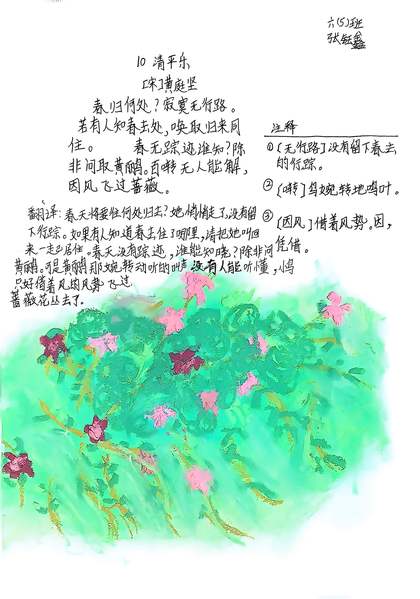 六(5)班
张钰鑫
10 清平乐
[宋]黄庭坚
春归何处？寂寞无行路。
若有人知春去处，唤取归来同
住。 春无踪迹谁知？除
非问取黄鹂。百啭无人能解，
因风飞过蔷薇。
注释
①〔无行路〕没有留下春去
的行踪。
②〔啭〕鸟婉转地鸣叫。
③〔因风〕借着风势。因，
凭借。
翻译：春天将要往何处归去？她悄悄走了，没有留
下行踪。如果有人知道春去住了哪里，请把她叫回
来一起居住。春天没有踪迹，谁能知晓？除非问
黄鹂。可是黄鹂那婉转动听的叫声没有人能听懂，
只好借着风势飞过
蔷薇花丛去了。